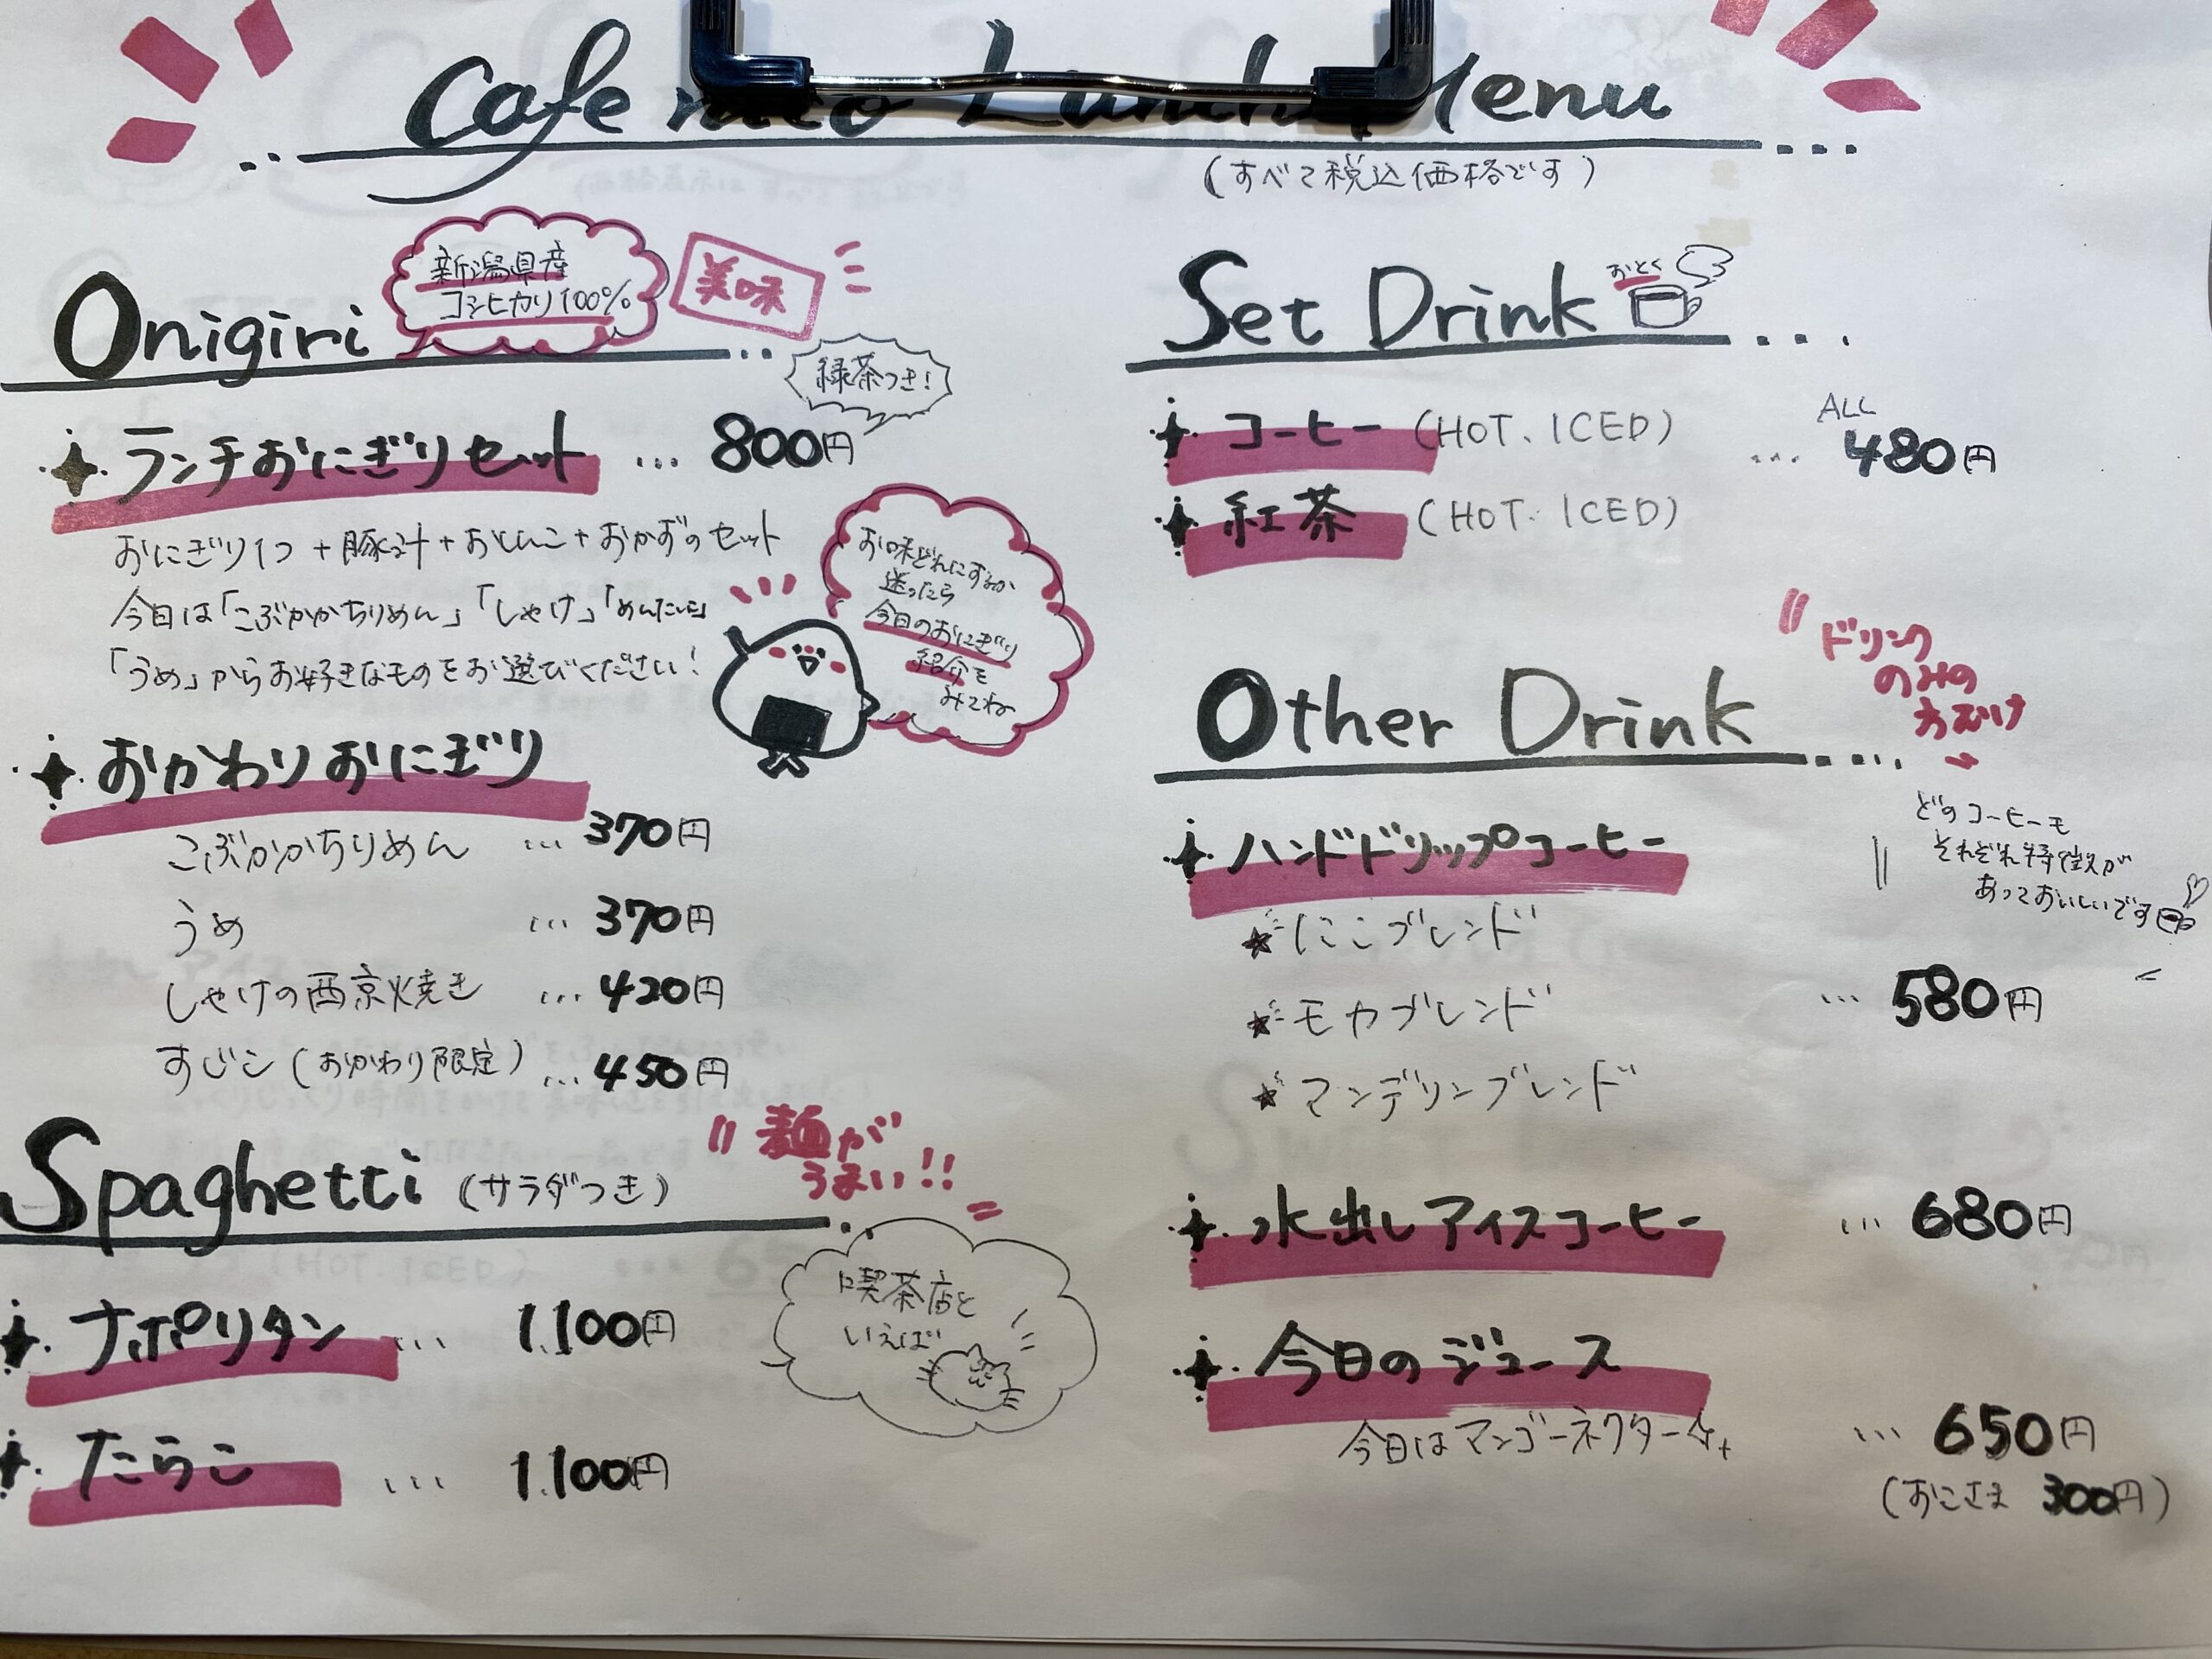 Cafe nico Lunch Menu
(すべて税込価格です)
Onigiri
新潟県産
コシヒカリ100%
美味
緑茶つき!
ランチおにぎりセット ... 800円
おにぎり1つ + 豚汁 + おしんこ + おかずのセット
今日は「こぶかかちりめん」「しゃけ」「めんたいこ」
「うめ」からお好きなものをお選びください!
お味どれにするか
迷ったら
今日のおにぎり
紹介を
みてね
おかわりおにぎり
こぶかかちりめん ... 370円
うめ ... 370円
しゃけの西京焼き ... 420円
すじこ(おかわり限定) ... 450円
Spaghetti (サラダつき)
麺が
うまい!!
ナポリタン ... 1.100円
たらこ ... 1.100円
喫茶店と
いえば
Set Drink
おとく
コーヒー (HOT、ICED)
紅茶 (HOT. ICED)
ALL
... 480円
Other Drink
ドリンク
のみの
方むけ
ハンドドリップコーヒー
どのコーヒーも
それぞれ特徴が
あっておいしいです
にこブレンド
モカブレンド
マンデリンブレンド
... 580円
水出しアイスコーヒー ... 680円
今日のジュース
今日はマンゴーネクター ... 650円
(おこさま 300円)